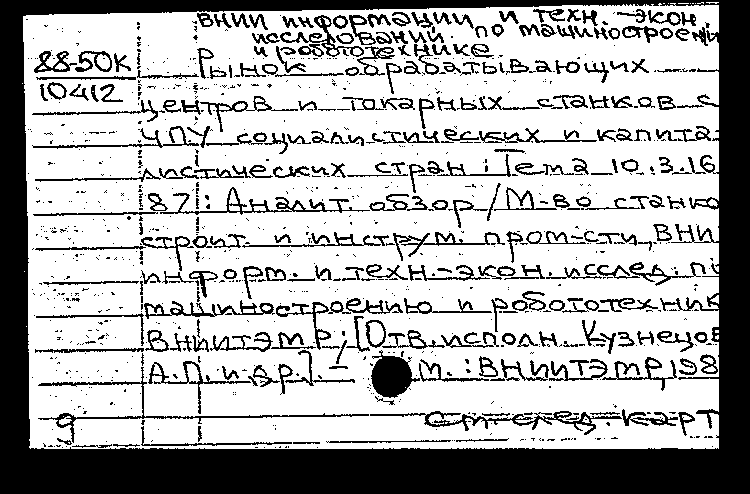 ВНИИ информации и техн.-экон.
исследований по машиностроени
и робототехнике
88-50К
10412
Рынок обрабатывающих
центров и токарных станков с
ЧПУ социалистических и капита-
листических стран: Тема 10.3.16
87: Аналит. обзор / М-во станко
строит. и инструм. пром-сти, ВНИ
информ. и техн.-экон. исслед. по
машиностроению и робототехник
ВНИИТЭМР; [Отв. исполн. Кузнецов
А.П. и др.]. –
М.: ВНИИТЭМР, 198
9
См. след. карт